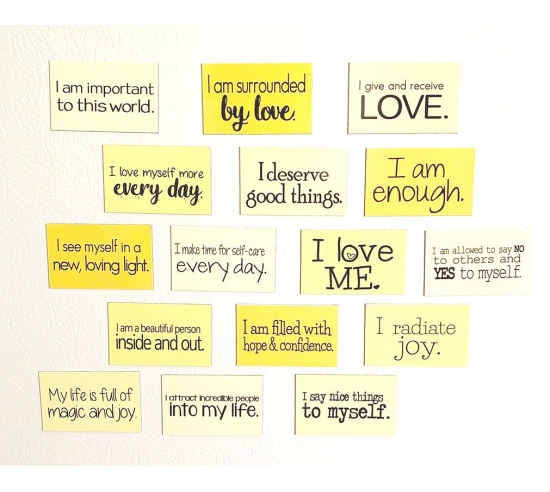 I am important
to this world.
I am surrounded
by love.
I give and receive
LOVE.
I love myself more
every day.
I deserve
good things.
I am
enough.
I see myself in a
new, loving light.
I make time for self-care
every day.
I love
ME.
I am allowed to say NO
to others and
YES to myself.
I am a beautiful person
inside and out.
I am filled with
hope & confidence.
I radiate
joy.
My life is full of
magic and joy.
I attract incredible people
into my life.
I say nice things
to myself.